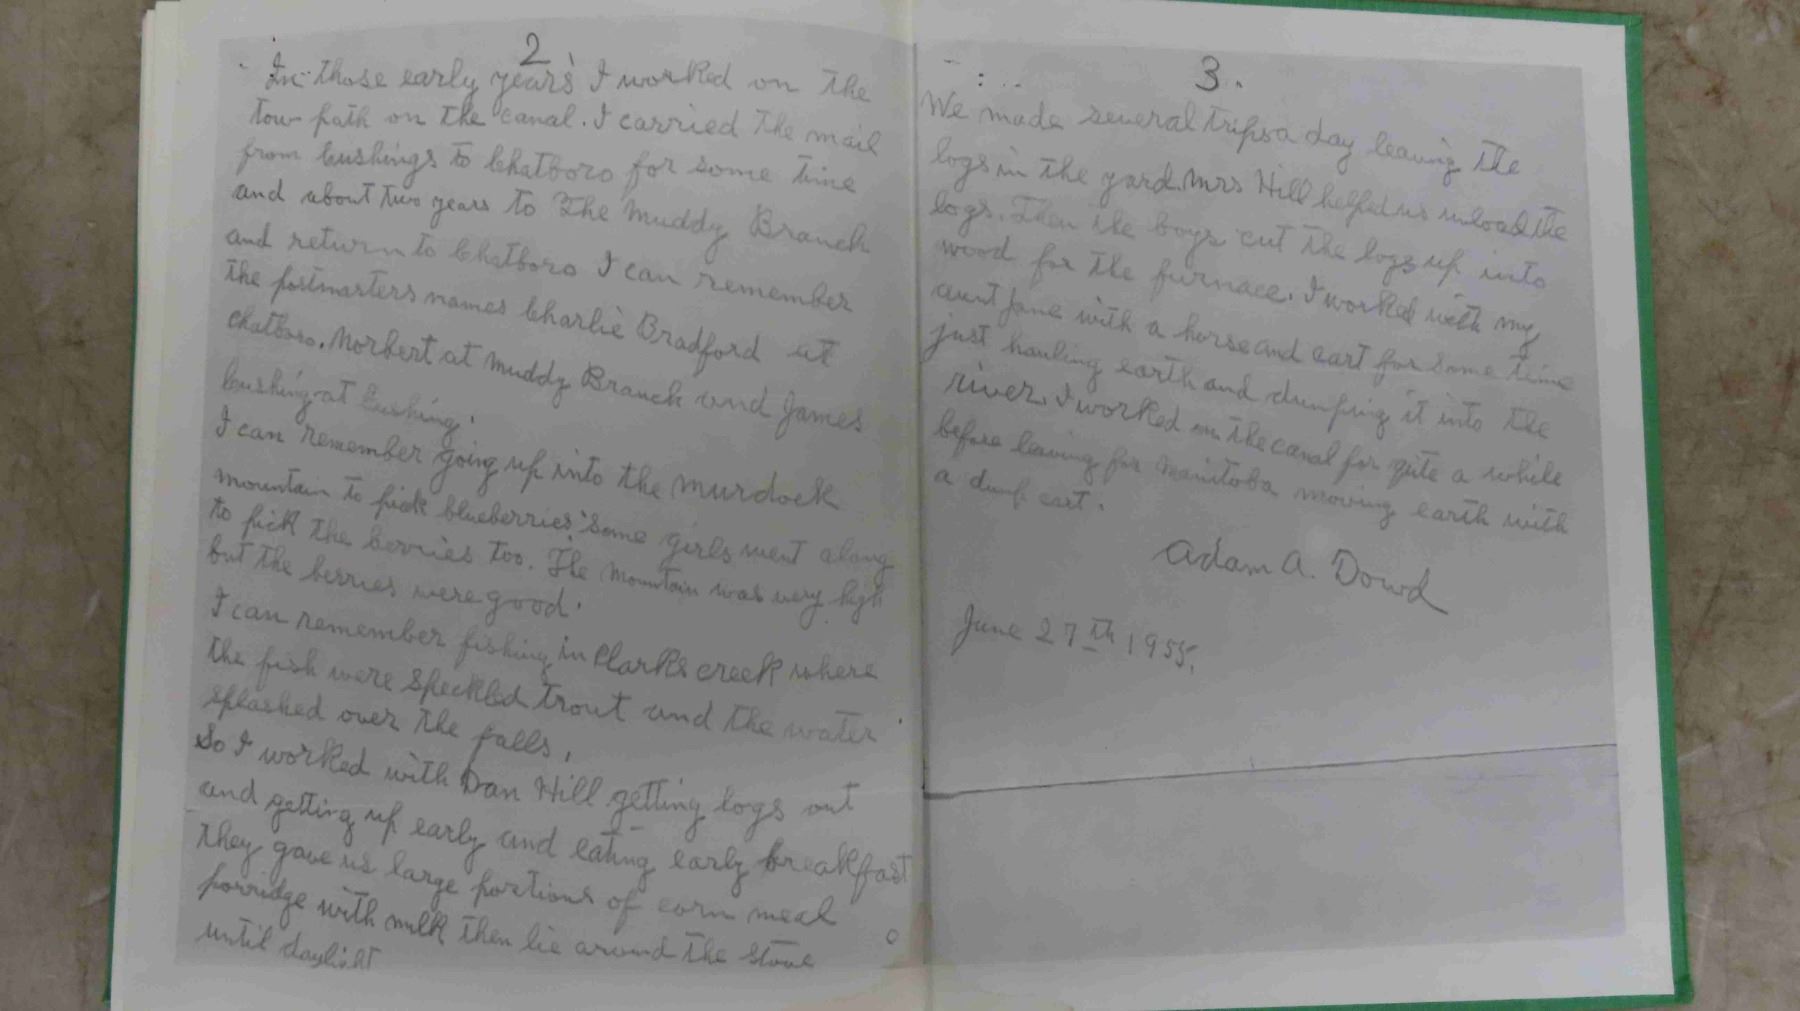 2
In those early years I worked on the
tow path on the canal. I carried the mail
from Cushings to Chatboro for some time
and about two years to The Muddy Branch
and return to Chatboro I can remember
the postmasters names Charlie Bradford at
Chatboro. Norbert at Muddy Branch and James
Cushing at Cushing.
I can remember going up into the Murdock
mountain to pick blueberries. Some girls went along
to pick the berries too. The mountain was very high
but the berries were good.
I can remember fishing in Clarks creek where
the fish were speckled trout and the water
splashed over the falls.
So I worked with Dan Hill getting logs out
and getting up early and eating early breakfast
They gave us large portions of corn meal
porridge with milk then lie around the stove
until daylight
3.
We made several trips a day leaving the
logs in the yard. Mrs Hill helped us unload the
logs. Then the boys cut the logs up into
wood for the furnace. I worked with my
aunt Jane with a horse and cart for some time
just hauling earth and dumping it into the
river. I worked on the canal for qite a while
before leaving for Manitoba moving earth with
a dump cart.
Adam A. Dowd
June 27th 1955.